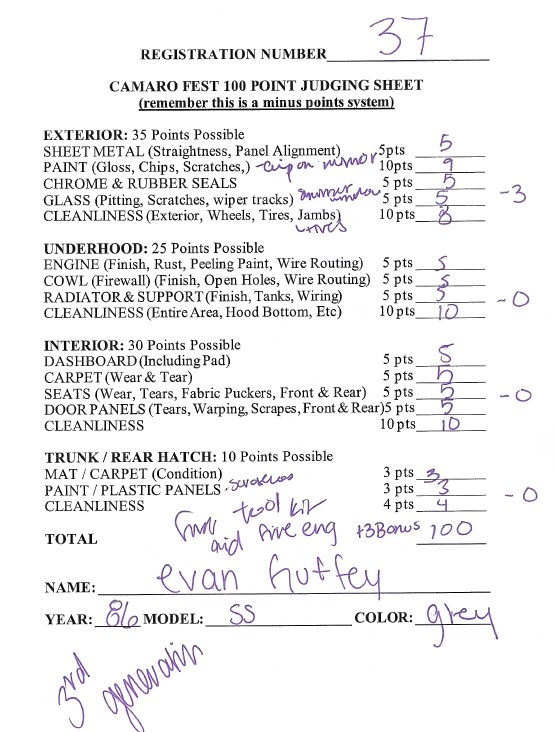 REGISTRATION NUMBER 37
CAMARO FEST 100 POINT JUDGING SHEET
(remember this is a minus points system)
EXTERIOR: 35 Points Possible
SHEET METAL (Straightness, Panel Alignment) 5pts 5
PAINT (Gloss, Chips, Scratches,) - chip on mirror 10pts 9
CHROME & RUBBER SEALS 5 pts 5
GLASS (Pitting, Scratches, wiper tracks) 5 pts 5 -3
CLEANLINESS (Exterior, Wheels, Tires, Jambs) 10 pts 8
UNDERHOOD: 25 Points Possible
ENGINE (Finish, Rust, Peeling Paint, Wire Routing) 5 pts 5
COWL (Firewall) (Finish, Open Holes, Wire Routing) 5 pts 5
RADIATOR & SUPPORT (Finish, Tanks, Wiring) 5 pts 5
CLEANLINESS (Entire Area, Hood Bottom, Etc) 10 pts 10 -0
INTERIOR: 30 Points Possible
DASHBOARD (Including Pad) 5 pts 5
CARPET (Wear & Tear) 5 pts 5
SEATS (Wear, Tears, Fabric Puckers, Front & Rear) 5 pts 5 -0
DOOR PANELS (Tears, Warping, Scrapes, Front & Rear) 5 pts 5
CLEANLINESS 10 pts 10
TRUNK / REAR HATCH: 10 Points Possible
MAT / CARPET (Condition) 3 pts 3
PAINT / PLASTIC PANELS - scratches 3 pts 3
CLEANLINESS 4 pts 4 -0
tool kit
TOTAL aid fire eng +3 Bonus 100
NAME: evan huffey
YEAR: 86 MODEL: SS COLOR: grey
3rd generation